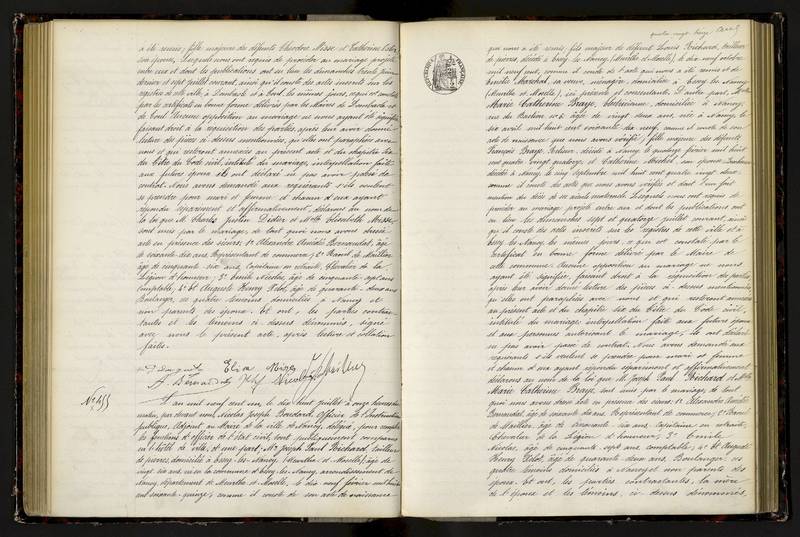 a été remis; fille majeure de défunts Théodore Misse et Catherine
son épouse. Lesquels nous ont requis de procéder au mariage projeté
entre eux et dont les publications ont eu lieu les dimanches trente juin
dernier et sept juillet courant ainsi qu'il conste des actes inscrits sur les
registres de cette ville, à Dombasle et à Toul, les mêmes jours, ce qui est constaté
par les certificats en bonne forme délivrés par les Maires de Dombasle et
de Toul. Aucune opposition au mariage ne nous ayant été signifiée
faisant droit à la réquisition des parties, après leur avoir donné
lecture des pièces ci dessus mentionnées, qu'elles ont paraphées avec
nous et qui resteront annexées au présent acte et du chapitre six
du titre du Code civil, intitulé du mariage, interpellation faite
aux futurs époux ils ont déclaré n'avoir pas passé de
contrat. Nous avons demandé aux requérants s'ils veulent
se prendre pour mari et femme et chacun d'eux ayant
répondu séparément et affirmativement, déclarons au nom de
la loi que M. Charles Justin Didier et Mlle Elisabeth Misse,
sont unis par le mariage, de tout quoi nous avons dressé
acte en présence des sieurs: 1° Alexandre Amédée Bernaudat, âgé
de soixante dix ans, Représentant de commerce; 2°
âgé de cinquante six ans, Capitaine en retraite, Chevalier de la
Légion d'honneur; 3° Emile Nicolas, âgé de cinquante sept ans,
Comptable; 4° et Auguste Henry Pelot, âgé de quarante deux ans,
Boulanger, ces quatre témoins domiciliés à Nancy et
non parents des époux. Et ont, les parties contrac-
tantes et les témoins ci dessus dénommés, signé
avec nous le présent acte, après lecture et collation
faites.
Elisa Misse
N° 455
L'an mil neuf cent un, le dix huit juillet à onze heures du
matin, par devant nous, Nicolas Joseph Boudard, Officier de l'Instruction
publique, Adjoint au Maire de la ville de Nancy, délégué, pour remplir
les fonctions d'officier de l'état civil, sont publiquement comparus
en l'hôtel de ville, d'une part, Mr Joseph Paul Richard, tailleur
de pierres, domicilié à Essey-lès-Nancy, (Meurthe et Moselle), âgé de
vingt six ans, né en la commune d'Essey-lès-Nancy, arrondissement de
Nancy, département de Meurthe et Moselle, le dix neuf février mil huit
cent soixante quinze, comme il conste de son acte de naissance
RÉPUBLIQUE FRANÇAISE
qui nous a été remis; fils majeur de défunt Louis Richard, tailleur
de pierres, décédé à Essey lès Nancy, (Meurthe et Moselle), le dix neuf octobre
mil neuf cent, comme il conste de l'acte qui nous a été remis et de
Emélie Maréchal, sa veuve, ménagère, domiciliée à Essey lès Nancy
(Meurthe et Moselle), ici présente et consentante. D'autre part, Mlle
Marie Catherine Braye, domiciliée à Nancy,
rue du Bastion n° 8, âgée de vingt deux ans, née à Nancy, le
six avril mil huit cent soixante dix neuf, comme il conste de son
acte de naissance que nous avons vérifié; fille majeure des défunts
François Braye, décédé à Nancy, le quatorze février mil huit
cent quatre vingt quatorze, et Catherine Michel, son épouse,
décédée à Nancy, le cinq septembre mil huit cent quatre vingt deux,
comme il conste des actes que nous avons vérifiés et dont l'un fait
mention du décès de ses aïeuls maternels. Lesquels nous ont requis de
procéder au mariage projeté entre eux et dont les publications ont
eu lieu les dimanches sept et quatorze juillet courant, ainsi
qu'il conste des actes inscrits sur les registres de cette ville et à
Essey lès Nancy, les mêmes jours, ce qui est constaté par le
certificat en bonne forme délivré par le Maire de
cette commune. Aucune opposition au mariage ne nous
ayant été signifiée, faisant droit à la réquisition des parties
après leur avoir donné lecture des pièces ci dessus mentionnées
qu'elles ont paraphées avec nous et qui resteront annexées
au présent acte et du chapitre six du titre du Code civil,
intitulé du mariage, interpellation faite aux futurs époux
et aux personnes autorisant le mariage, ils ont déclaré
n'avoir pas passé de contrat. Nous avons demandé aux
requérants s'ils veulent se prendre pour mari et femme
et chacun d'eux ayant répondu séparément et affirmativement
déclarons au nom de la loi que M. Joseph Paul Richard et Mlle
Marie Catherine Braye sont unis par le mariage, de tout
quoi nous avons dressé acte en présence des sieurs: 1° Alexandre Amédée
Bernaudat, âgé de soixante dix ans, Représentant de commerce; 2°
âgé de cinquante six ans, Capitaine en retraite,
Chevalier de la Légion d'honneur; 3° Emile
Nicolas, âgé de cinquante sept ans, Comptable; 4° et Auguste
Henry Pelot, âgé de quarante deux ans, Boulanger; ces
quatre témoins domiciliés à Nancy et non parents des
époux. Et ont, les parties contractantes, la mère
de l'époux et les témoins, ci dessus dénommés,